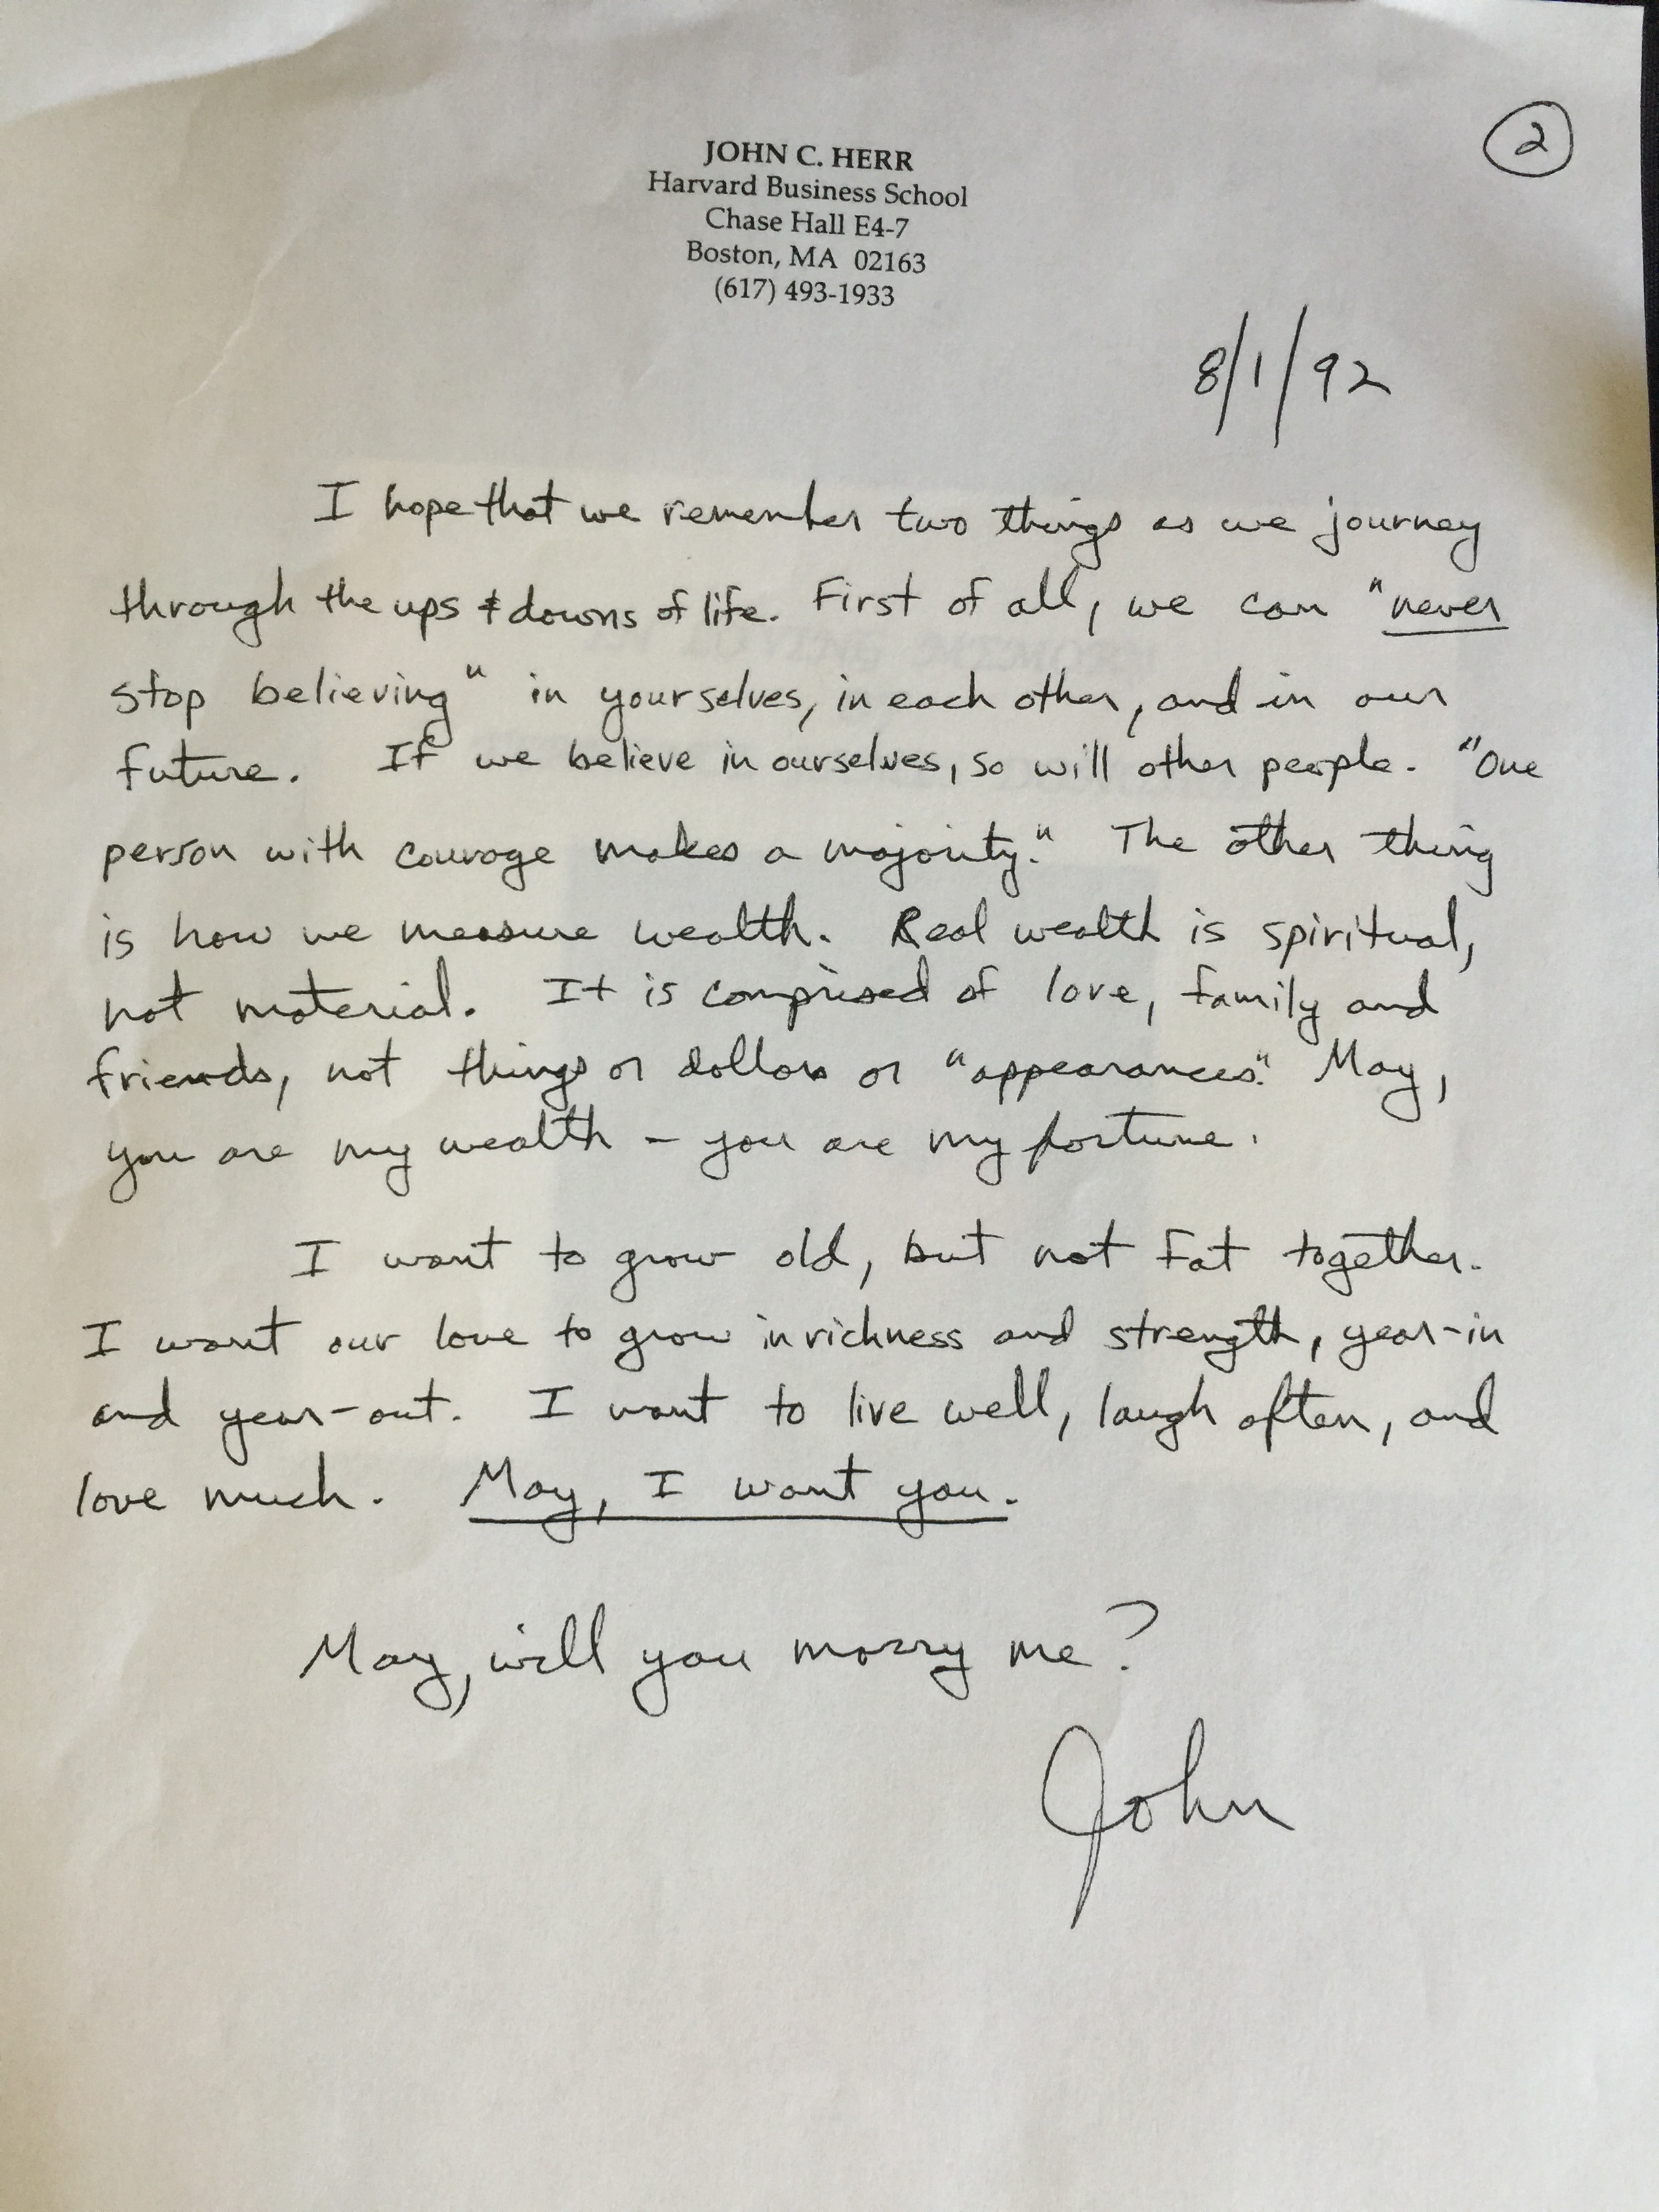 2
JOHN C. HERR
Harvard Business School
Chase Hall E4-7
Boston, MA 02163
(617) 493-1933
8/1/92
I hope that we remember two things as we journey
through the ups & downs of life. First of all, we can "never
stop believing" in yourselves, in each other, and in our
future. If we believe in ourselves, so will other people. "One
person with courage makes a majority." The other thing
is how we measure wealth. Real wealth is spiritual,
not material. It is comprised of love, family and
friends, not things or dollars or "appearances." May,
you are my wealth - you are my fortune.
I want to grow old, but not fat together.
I want our love to grow in richness and strength, year-in
and year-out. I want to live well, laugh often, and
love much. May, I want you.
May, will you marry me?
John